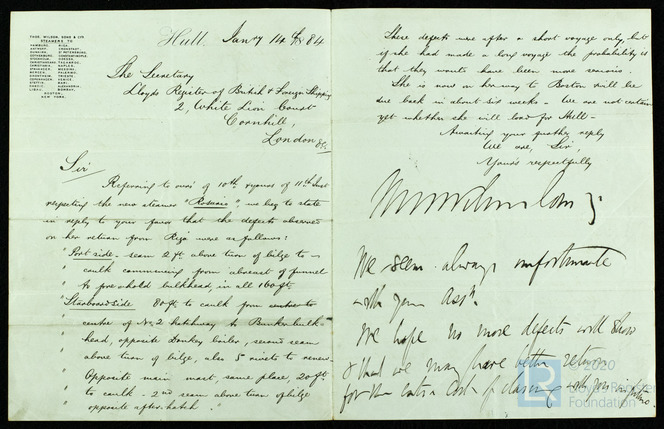 THOS. WILSON, SONS & CO.
STEAMERS TO
HAMBURG, RIGA,
ANTWERP, CRONSTADT,
DUNKIRK, ST PETERSBURG,
GOTHENBURG, CONSTANTINOPLE,
STOCKHOLM, ODESSA,
CHRISTIANIA, NAPLES,
BERGEN, PALERMO,
BOMBAY,
BOSTON,
NEW YORK.
Hull. Jany 14th 1884
The Secretary
Lloyds Register of British & Foreign Shipping
2, White Lion Court
Cornhill,
London E.C.
Sir
Referring to ours of 10th & yours of 11th Inst
respecting the new steamer "Romeo" we beg to state
in reply to your favor that the defects observed
on her return from Riga were as follows:
" Port side - seam 2 ft above turn of bilge to
" caulk commencing from abreast of funnel
" to fore hold bulkhead, in all 160 ft
" Starboard side 80 ft to caulk from centre to
" centre of No. 2 hatchway to Bunker bulk-
" head, opposite Donkey boiler, second seam
" above turn of bilge, also 5 rivets to renew
" Opposite main mast, same place, 20 ft
" to caulk - 2nd seam above turn of bilge
" opposite after hatch. "
These defects were after a short voyage only, but
if she had made a long voyage the probability is
that they would have been more serious.
She is now on her way to Boston & will be
due back in about six weeks - we are not certain
yet whether she will load for Hull -
Awaiting your further reply
We are, Sir,
Yours respectfully
We seem always unfortunate
with your Assn.
We hope no more defects will show
& that we may have better return
for the extra cost of classing with you in future
2020
Lloyd's Register
Foundation